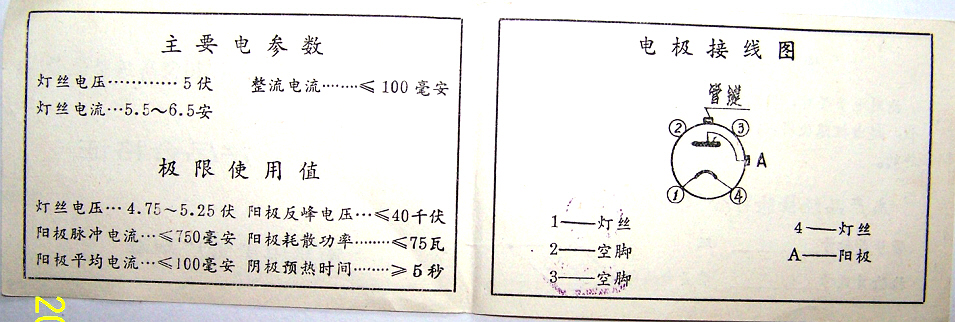 主要电参数
灯丝电压…………5伏 整流电流………≤100毫安
灯丝电流…5.5～6.5安
极限使用值
灯丝电压…4.75～5.25伏 阳极反峰电压…≤40千伏
阳极脉冲电流…≤750毫安 阳极耗散功率………≤75瓦
阳极平均电流…≤100毫安 阴极预热时间………≥5秒
电极接线图
管键
② ③
A
① ④
1——灯丝 4——灯丝
2——空脚 A——阳极
3——空脚